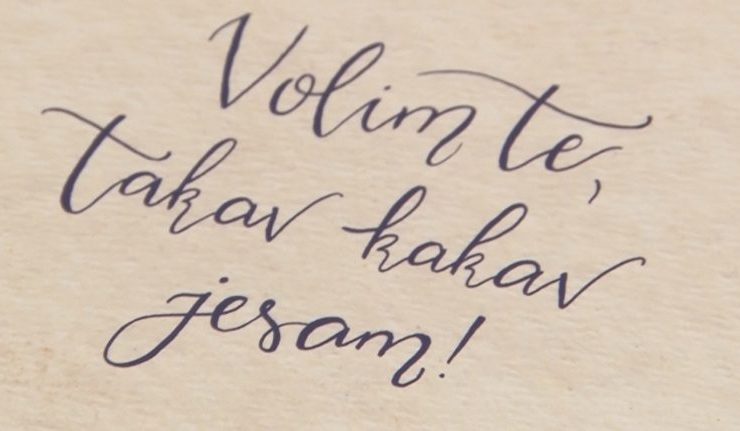 Volim te,
takav kakav
jesam!